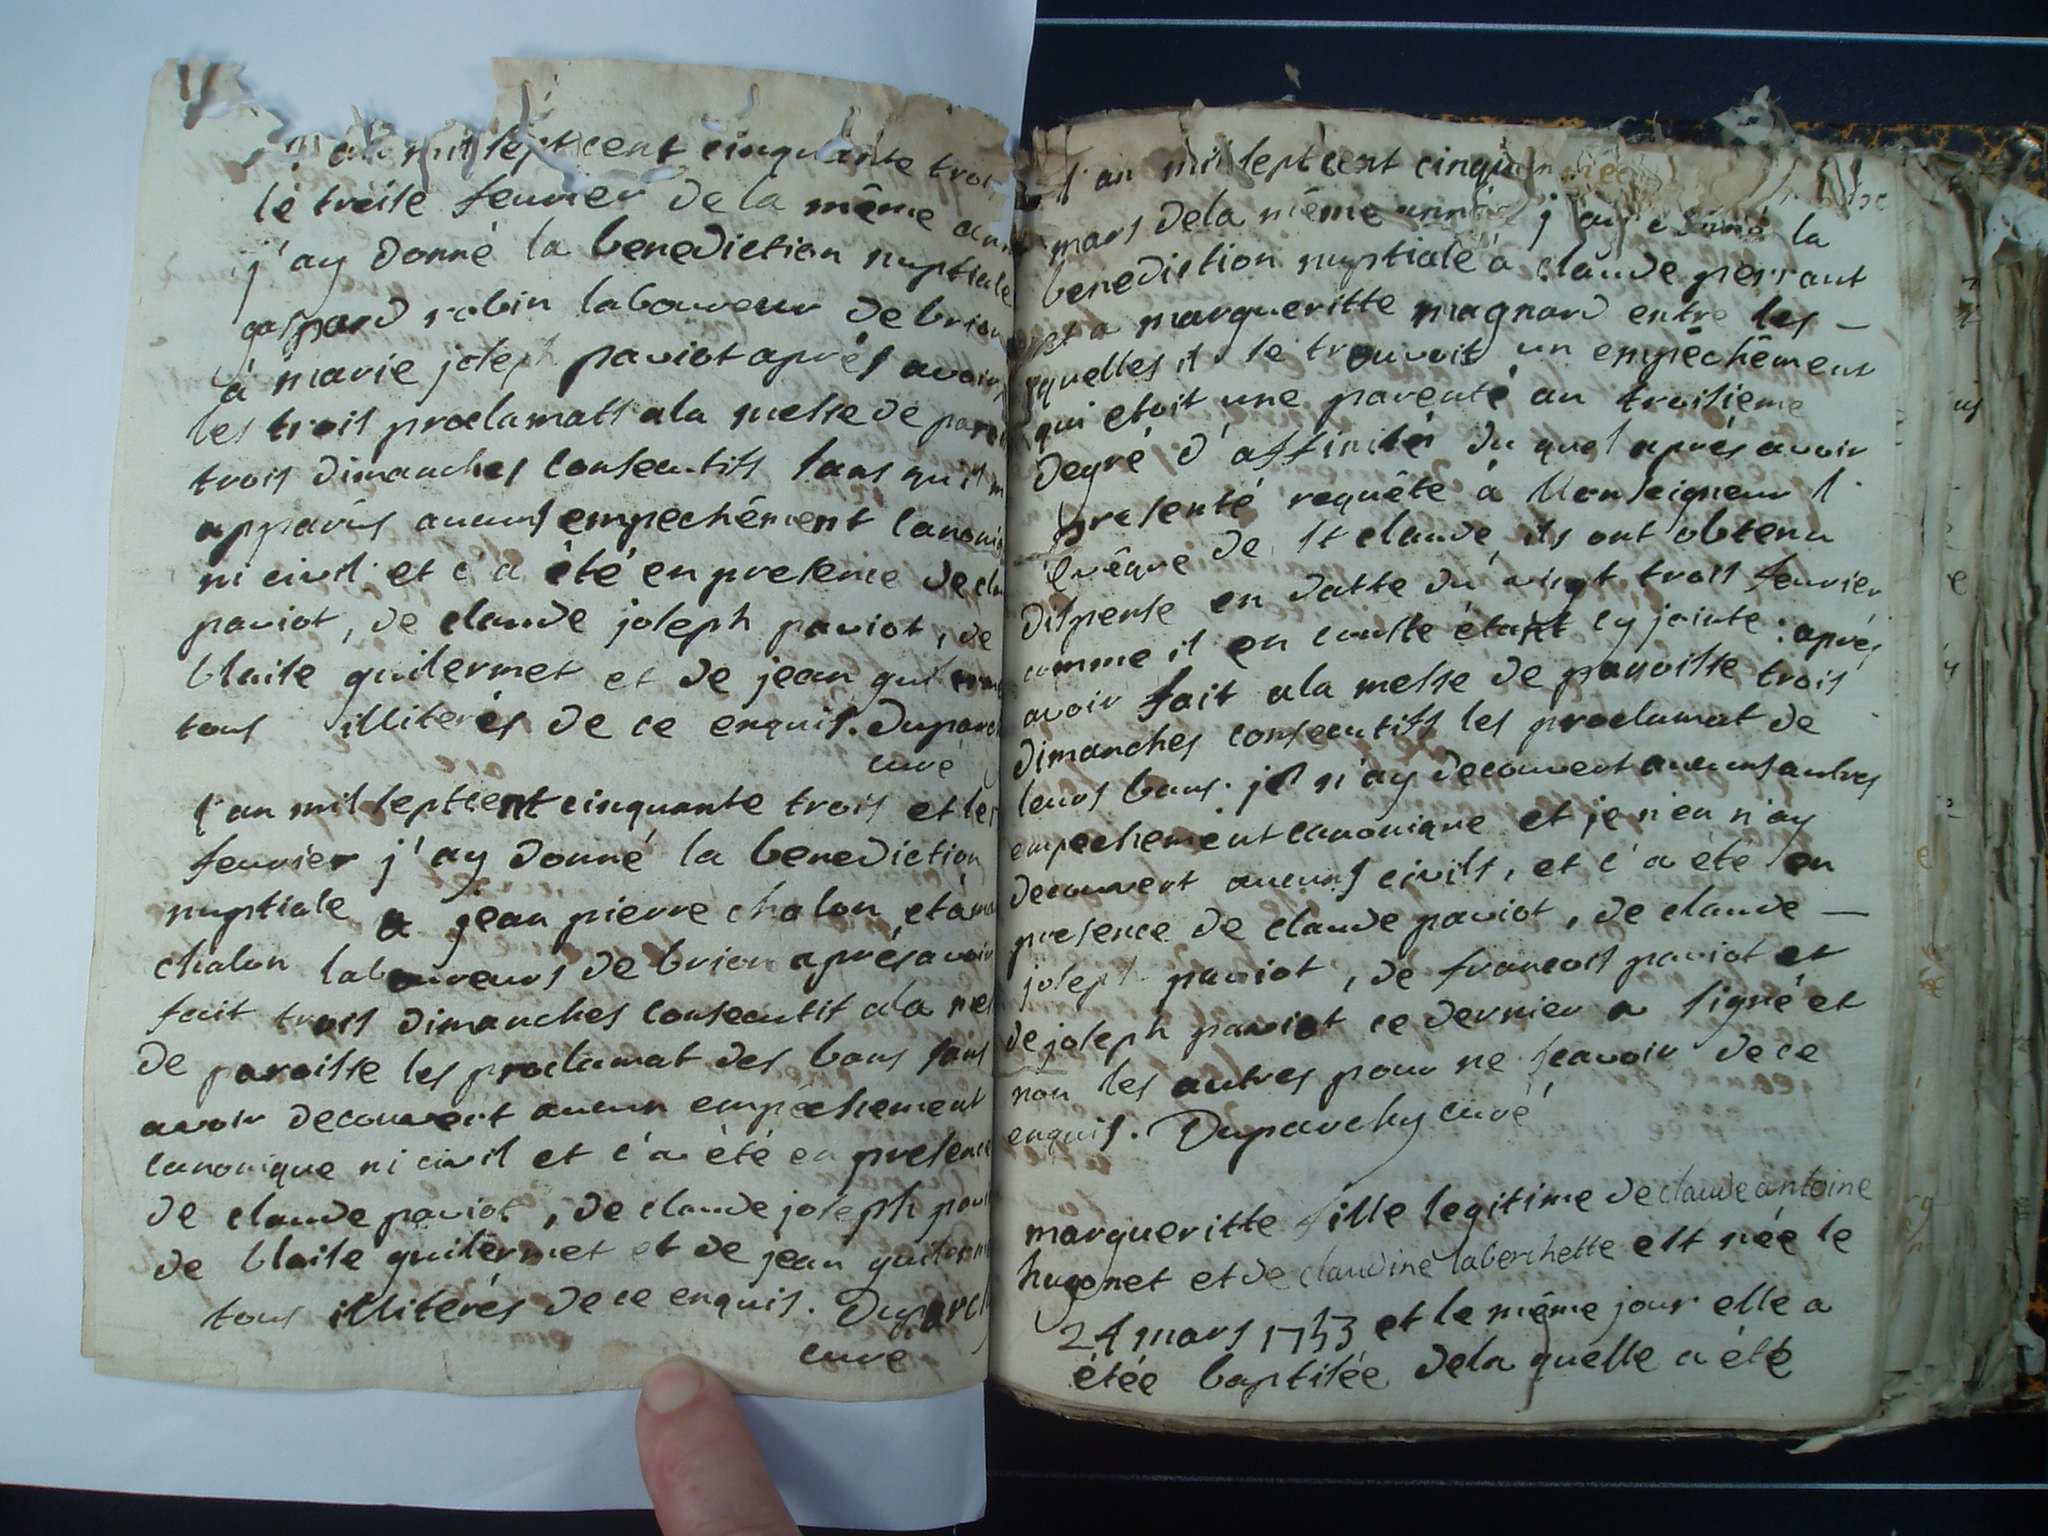 l'an mil sept cent cinquante trois
le treise feuvrier de la même
j'ay donné la benediction nuptiale
gaspard robin laboureur de brion
à marie joseph paviot aprés avoir
les trois proclamats a la messe de
trois dimanches consecutifs sans qu'il
apparûs aucuns empechêment
ni civil et c'a été en presence de
paviot, de claude joseph paviot, de
blaise guilermet et de jean
tous illiterés de ce enquis.
curé
l'an mil sept cent cinquante trois et le
feuvrier j'ay donné la benediction
nuptiale a jean pierre chalon et a
chalon laboureurs de brion aprés avoir
fait trois dimanches consecutif a la
de paroisse les proclamat des bans sans
avoir decouvert aucun empêchement
canonique ni civil et c'a été en presence
de claude paviot, de claude joseph
de blaise guilermet et de jean
tous illiterés de ce enquis.
curé
l'an mil sept cent
mars de la même année j'ay donné la
benediction nuptiale à claude perraut
et a margueritte magnard entre les —
quelles il se trouvoit un empêchêment
qui etoit une parenté au troisieme
degré d'affinité du quel aprés avoir
presenté requête à Monseigneur l'
evêque de st claude, ils ont obtenu
dispense en datte du vingt trois feuvrier
comme il en conste étant cy jointe : aprés
avoir fait a la messe de paroisse trois
dimanches consecutifs les proclamat de
leurs bans. je n'ay decouvert aucuns autres
empechement canonique et je n'en n'ay
decouvert aucuns civils, et c'a été en
presence de claude paviot, de claude —
joseph paviot, de francois paviot et
de joseph paviot ce dernier a signé et
non les autres pour ne scavoir de ce
enquis. Duparchy curé
margueritte fille legitime de claude antoine
hugonet et de claudine laberchette est née le
24 mars 1753 et le même jour elle a
étée baptisée de la quelle a été